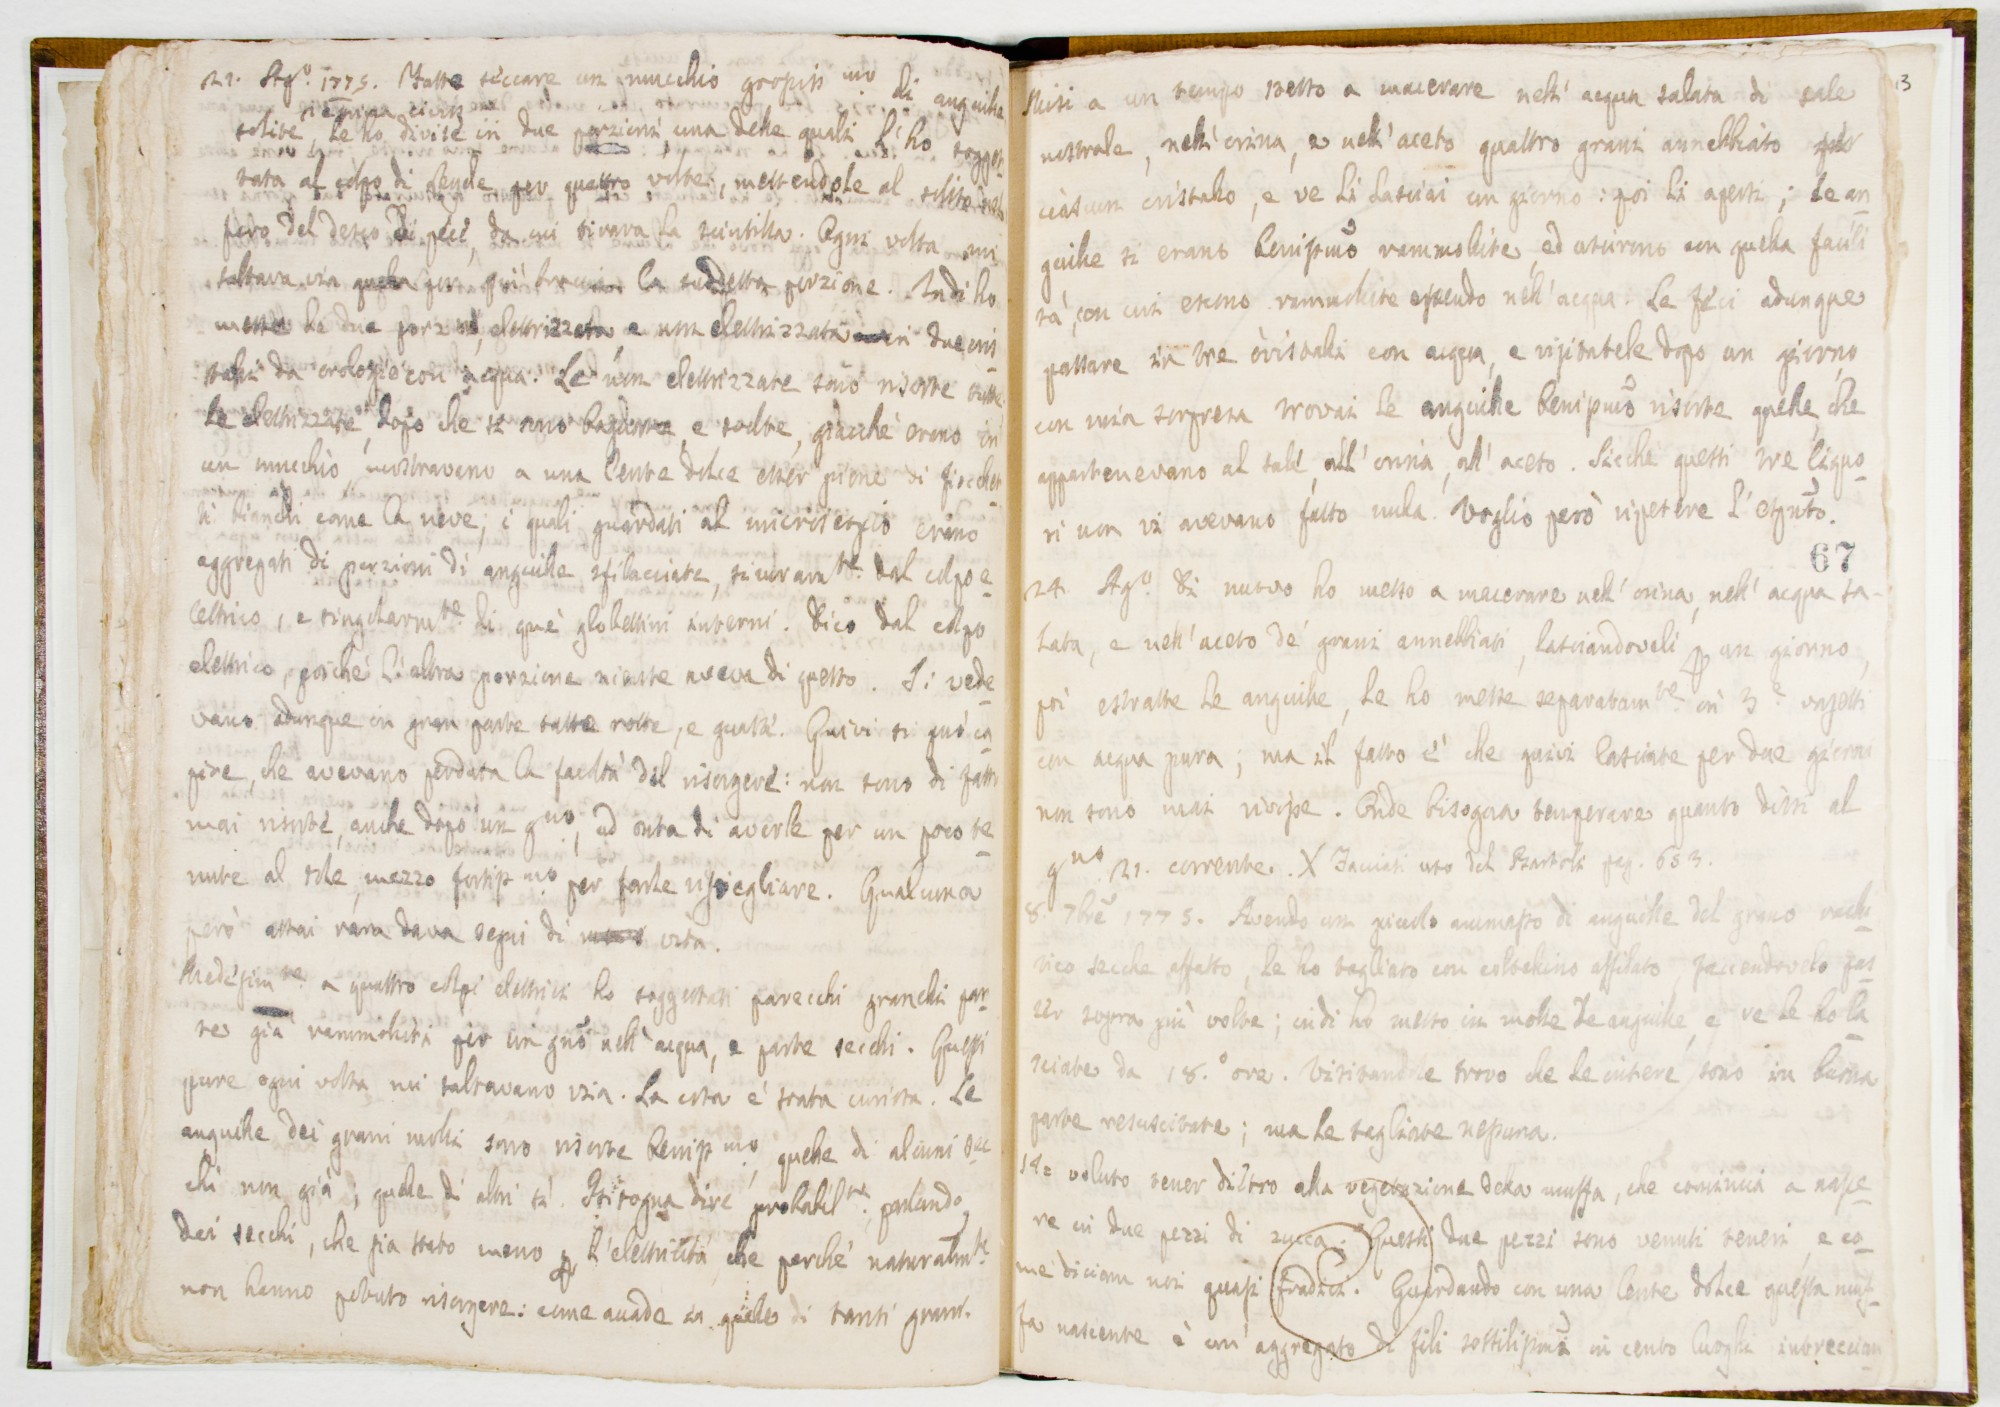 21. Ag.º 1775. Fatte seccare un mucchio di anguille
solite, le ho divise in due porzioni una delle quali l'ho sogget
tata al colpo di per quattro volte, mettendole al solito
del desco di da cui tirava la scintilla. Ogni volta mi
saltava via la suddetta porzione. Indi ho
messe le due porzioni, elettrizzata, e non elettrizzata in due cris
talli da orologie con acqua. Le non elettrizzate sono risorte tutte
le elettrizzate, dopo che si sono bagnate, e sciolte, giacchè erano in
un mucchio, mostravano a una lente dolce esser piene di fiocchet
ti bianchi come la neve; i quali guardati al microscopio erano
aggregati di porzioni di anguille sfilacciate, sicuram.te dal colpo e
lettrico, e singolarm.te di que' globettini interni. Dico dal colpo
elettrico, poichè l'altra porzione niente aveva di questo. Si vede
vano adunque in gran parte tutte rotte, e guaste. Quivi si può ca
pire, che avevano perduta la facoltà del risorgere: non sono di fatto
mai risorte, anche dopo un g.no, ad onta di averle per un poco te
nute al sole, mezzo fortiss.mo per farle risvegliare. Qualcuna
però assai rara dava segni di vita.
Medesim.te a quattro colpi elettrici ho soggettati parecchi granelli par
te già rammolliti per un g.no nell'acqua, e parte secchi. Questi
pure ogni volta mi saltavano via. La cosa è stata curiosa. Le
anguille dei grani molli sono risorte beniss.mo, quelle di alcuni sec
chi non già; quelle di altri sì. Bisogna dire probabil.te, parlando
dei secchi, che sia stato meno p l'elettricità, che perchè naturalm.te
non hanno potuto risorgere: come accade in quelle di tanti grani.
13
Misi a un tempo stesso a macerare nell'acqua salata di sale
nostrale, nell'orina, e nell'aceto quattro grani annebbiato per
ciascun cristallo, e ve li lasciai un giorno: poi li apersi; le an
guille si erano benissmo rammollite, ed uscirono con quella facili
tà, con cui escono rammollite essendo nell'acqua. Le feci adunque
passare in tre cristalli con acqua, e visitatele dopo un giorno,
con mia sorpresa trovai le anguille benissmo risorte quelle, che
appartenevano al sale, all'orina, all'aceto. Sicchè questi tre liquo
ri non vi avevano fatto nulla. Voglio però ripetere l'espnto.
67
24. Ag.º Di nuovo ho messo a macerare nell'orina, nell'acqua sa-
lata, e nell'aceto de' grani annebbiati, lasciandoveli p un giorno,
poi estratte le anguille, le ho messe separatam.te in 3.e vasetti
con acqua pura; ma il fatto è che quivi lasciate per due giorni
non sono mai rivisse. Onde bisogna temperare quanto dissi al
g.no 21. corrente. X uso del pag. 653.
8. 7bre 1775. Avendo un piccolo ammasso di anguille del grano rachi
tico secche affatto, le ho tagliato con coltellino affilato facendovelo pas
ser sopra più volte; indi ho messo in molle le anguille, e ve le ho la
sciate da 18.º ore. Visitandole trovo che le intiere sono in buona
parte resuscitate; ma le tagliate nessuna.
14= voluto tener dietro alla vegetazione della muffa, che comincia a nasce
re in due pezzi di zucca. Questi due pezzi sono venuti teneri, e co
me diciam noi quasi fradici. Guardando con una lente dolce questa muf
fa nascente è un'aggregato di fili sottilissmi in cento luoghi intreccian